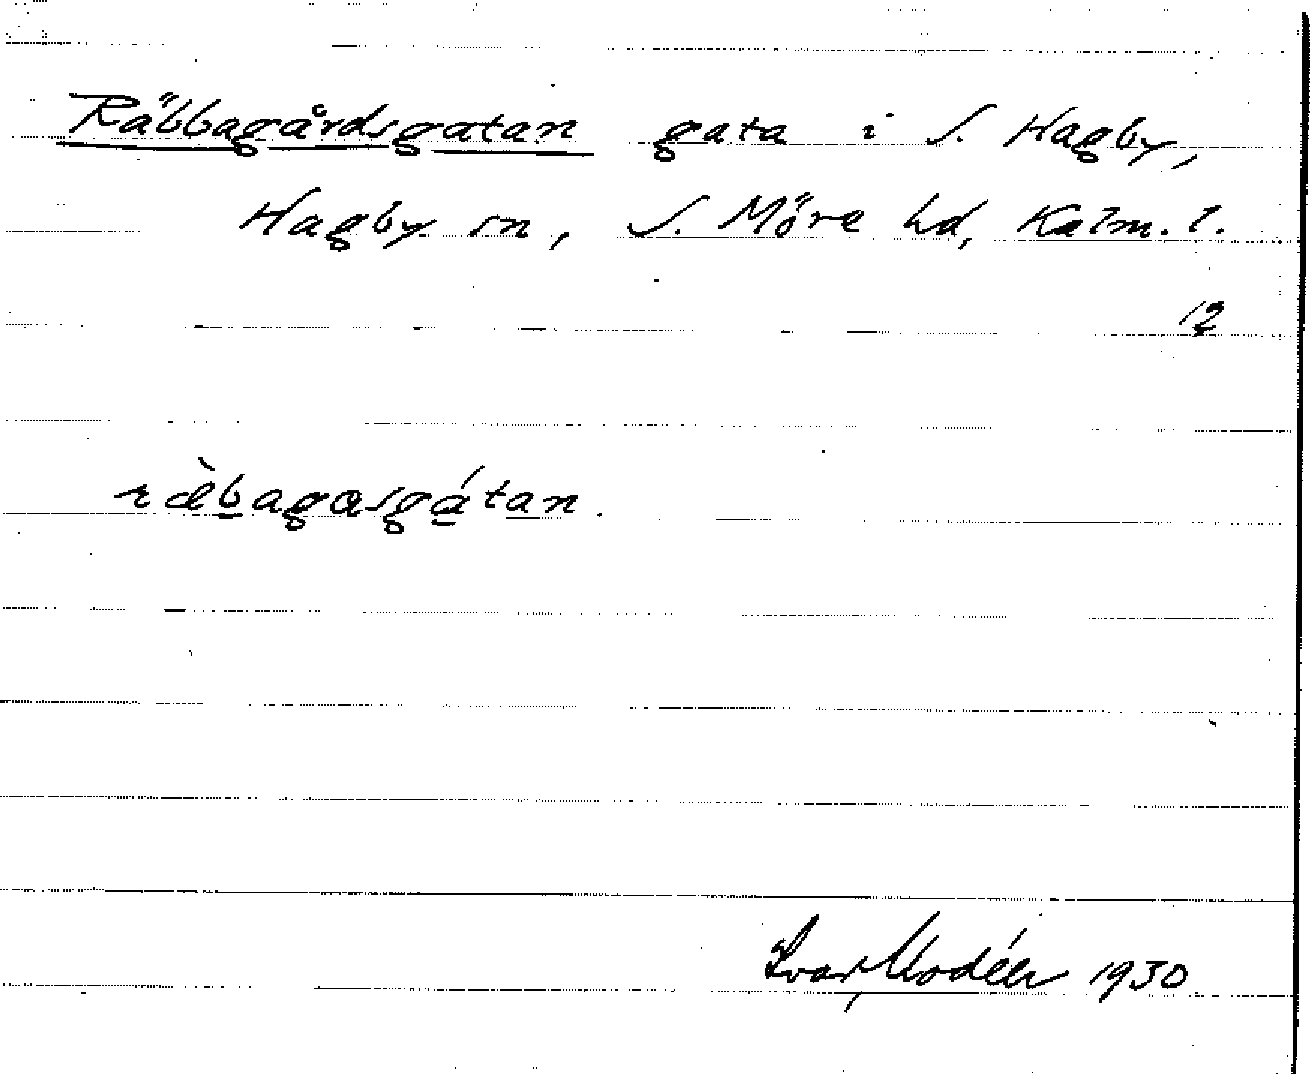 Räbbagårdsgatan gata i S. Hagby,
Hagby sn, S. Möre hd, Kalm. l.
12
ræ̀b̲agɑsgá̲tan.
Ivar Modéer 1930